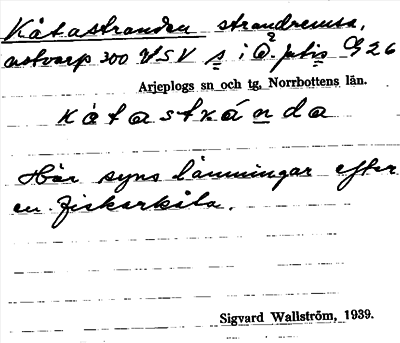 Kåtastranden strandremsa,
300 VSV s i
Arjeplogs sn och tg, Norrbottens län.
kåtastránda
Här syns lämningar efter
en fiskarkåta.
Sigvard Wallström, 1939.